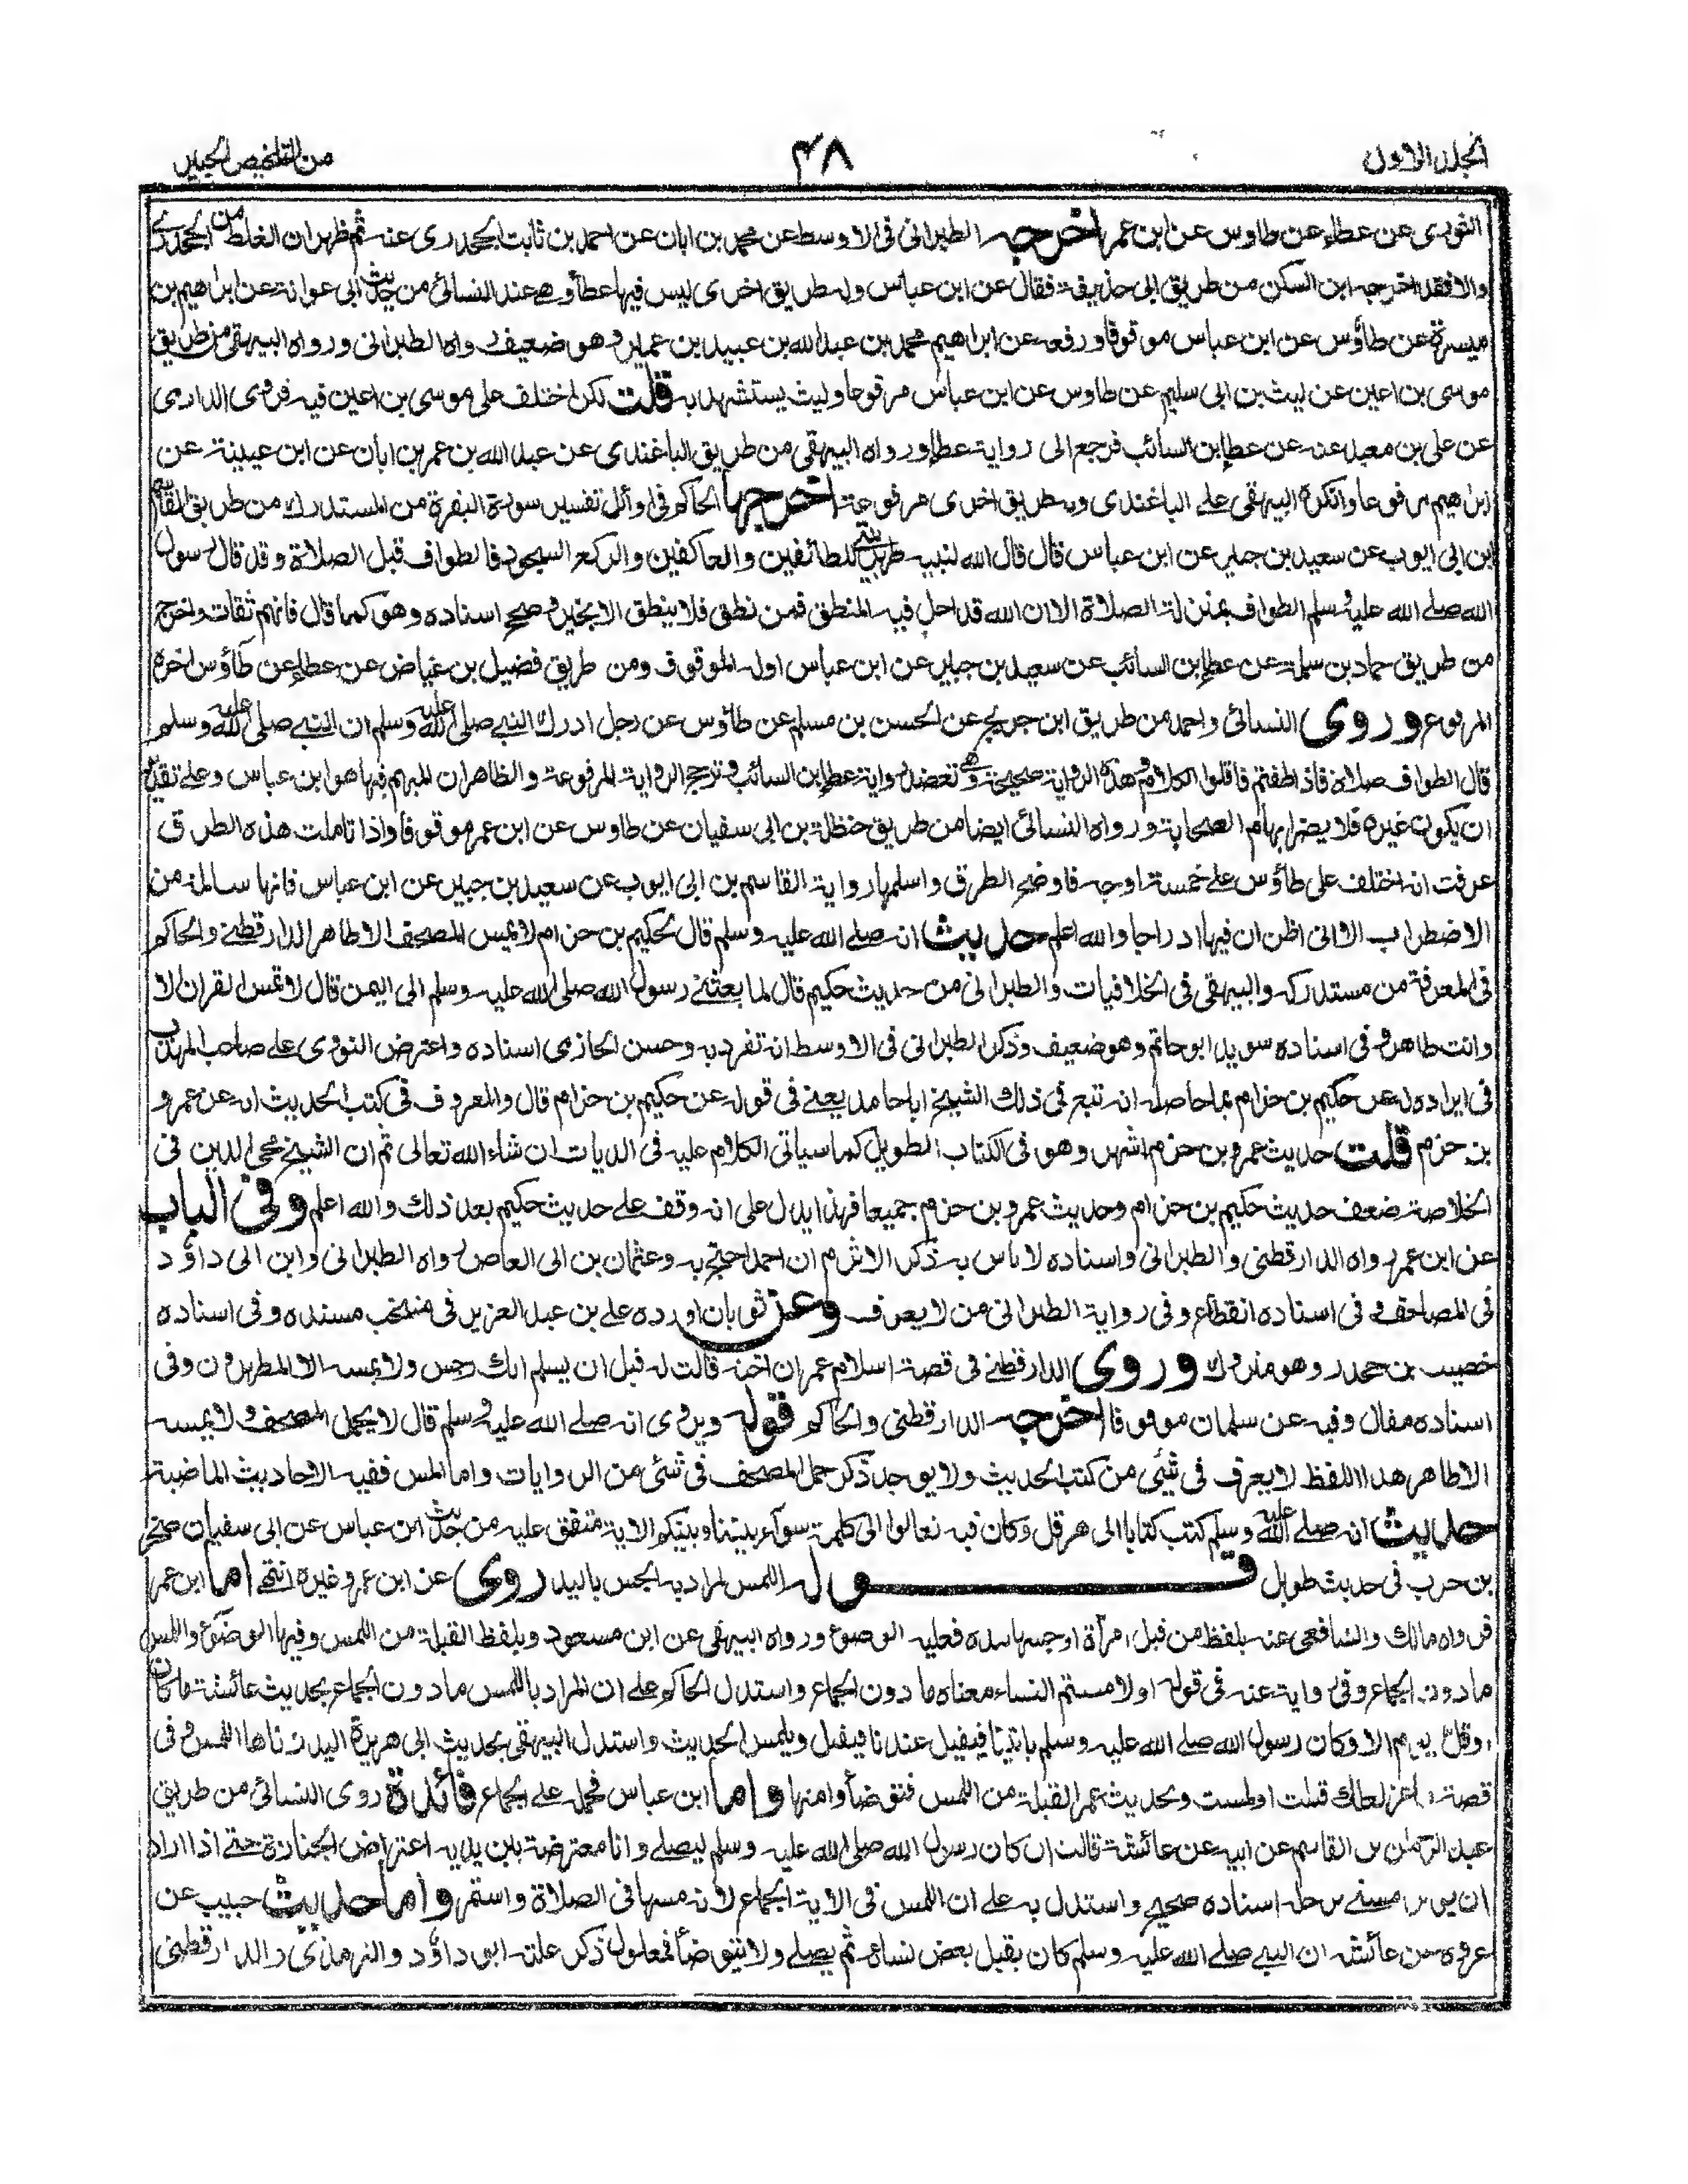 المجلد الاول
٤٨
من التلخيص الحبير
الثوري عن عطاء عن طاوس عن ابن عمر اخرجه الطبراني في الاوسط عن محمد بن ابان عن احمد بن ثابت الجحدري عنه ثم ظهر ان الغلط من الجحدري
والا فقد اخرجه ابن السكن من طريق ابى حذيفة فقال عن ابن عباس وله طريق اخرى ليس فيها عطاء وهي عند النسائي من حديث ابي عوانة عن ابراهيم بن
ميسرة عن طاؤس عن ابن عباس موقوفا ورفعه عن ابراهيم محمد بن عبد الله بن عبيد بن عمير وهو ضعيف رواه الطبراني ورواه البيهقي من طريق
موسى بن اعين عن ليث بن ابى سليم عن طاوس عن ابن عباس مرفوعا وليث يستشهد به قلت لكن اختلف على موسى بن اعين فيه فروى الدارمي
عن على بن معبد عنه عن عطاء بن السائب فرجع الى رواية عطاء ورواه البيهقي من طريق الباغندى عن عبد الله بن عمر بن ابان عن ابن عيينة عن
ابراهيم مرفوعا وانكره البيهقي على الباغندى وله طريق اخرى مرفوعة اخرجها الحاكم في اوائل تفسير سورة البقرة من المستدرك من طريق القاسم
ابن ابى ايوب عن سعيد بن جبير عن ابن عباس قال قال الله لنبيه طهر بيتي للطائفين والعاكفين والركع السجود فالطواف قبل الصلاة وقد قال رسول
الله صلى الله عليه وسلم الطواف بمنزلة الصلاة الا ان الله قد احل فيه المنطق فمن نطق فلا ينطق الا بخير وصحح اسناده وهو كما قال فانهم ثقات واخرج
من طريق حماد بن سلمة عن عطاء بن السائب عن سعيد بن جبير عن ابن عباس اوله الموقوف ومن طريق فضيل بن عياض عن عطاء عن طاؤس اخره
المرفوع وروى النسائى واحمد من طريق ابن جريج عن الحسن بن مسلم عن طاؤس عن رجل ادرك النبي صلى الله عليه وسلم ان النبي صلى الله عليه وسلم
قال الطواف صلاة فاذا طفتم فاقلوا الكلام وهذه الرواية صحيحة وهي تعضد رواية عطاء بن السائب وترجح الرواية المرفوعة والظاهر ان المبهم فيها هو ابن عباس وعلى تقدير
ان يكون غيره فلا يضر ابهام الصحابة ورواه النسائى ايضا من طريق حنظلة بن ابى سفيان عن طاوس عن ابن عمر موقوفا واذا تاملت هذه الطرق
عرفت انه اختلف على طاؤس على خمسة اوجه فاوضح الطرق واسلمها رواية القاسم بن ابى ايوب عن سعيد بن جبير عن ابن عباس فانها سالمة من
الاضطراب الا انى اظن ان فيها ادراجا والله اعلم حديث انه صلى الله عليه وسلم قال لحكيم بن حزام لا يمس المصحف الا طاهر الدارقطني والحاكم
في المعرفة من مستدركه والبيهقى فى الخلافيات والطبرانى من حديث حكيم قال لما بعثني رسول الله صلى الله عليه وسلم الى اليمن قال لا تمس القران الا
وانت طاهر وفى اسناده سويد ابو حاتم وهو ضعيف وذكر الطبرانى فى الاوسط انه تفرد به وحسن الحازمى اسناده واعترض النووى على صاحب المهذب
فى ايراده له عن حكيم بن حزام بما حاصله انه تبع فى ذلك الشيخ ابا حامد يعني فى قوله عن حكيم بن حزام قال والمعروف فى كتب الحديث انه عن عمرو
بن حزم قلت حديث عمرو بن حزم اشهر وهو فى الكتاب الطويل كما سياتى الكلام عليه فى الديات ان شاء الله تعالى ثم ان الشيخ محي الدين فى
الخلاصة ضعف حديث حكيم بن حزام وحديث عمرو بن حزم جميعا فهذا يدل على انه وقف على حديث حكيم بعد ذلك والله اعلم وفى الباب
عن ابن عمر رواه الدارقطنى والطبرانى واسناده لا باس به ذكر الاثرم ان احمد احتج به وعثمان بن ابى العاص رواه الطبرانى وابن ابى داؤد
فى المصاحف وفى اسناده انقطاع وفى رواية الطبرانى من لا يعرف وعن ثوبان اورده على بن عبد العزيز فى منتخب مسنده وفى اسناده
خصيب بن جحدر وهو متروك وروى الدارقطني فى قصة اسلام عمر ان اخته قالت له قبل ان يسلم انك رجس ولا يمسه الا المطهرون وفى
اسناده مقال وفيه عن سلمان موقوفا اخرجه الدارقطنى والحاكم قوله ويروى انه صلى الله عليه وسلم قال لا يحمل المصحف ولا يمسه
الا طاهر هذا اللفظ لا يعرف فى شئى من كتب الحديث ولا يوجد ذكر حمل المصحف فى شئى من الروايات واما المس ففيه الاحاديث الماضية
حديث انه صلى الله عليه وسلم كتب كتابا الى هرقل وكان فيه تعالوا الى كلمة سوآء بيننا وبينكم الاية متفق عليه من حديث ابن عباس عن ابى سفيان صخر
بن حرب فى حديث طويل قوله اللمس المراد به الجس باليد روى عن ابن عمر وغيره انتهى اما ابن عمر
فرواه مالك والشافعى عنه بلفظ من قبل امرأة او جسها بيده فعليه الوضوء ورواه البيهقى عن ابن مسعود وبلفظ القبلة من اللمس وفيها الوضوء واللمس
ما دون الجماع وفى رواية عنه فى قوله او لامستم النساء معناه ما دون الجماع واستدل الحاكم على ان المراد باللمس ما دون الجماع بحديث عائشة ما كان
او قل يوم الا وكان رسول الله صلى الله عليه وسلم ياتينا فيقبل عندنا فيقبل ويلمس الحديث واستدل البيهقى بحديث ابى هريرة اليد زناها اللمس وفى
قصة ماعز لعلك قبلت او لمست وبحديث عمر القبلة من اللمس فتوضأوا منها واما ابن عباس فحمله على الجماع فائدة روى النسائى من طريق
عبد الرحمن بن القاسم عن ابيه عن عائشة قالت ان كان رسول الله صلى الله عليه وسلم ليصلى وانا معترضة بين يديه اعتراض الجنازة حتى اذا اراد
ان يوتر مسني برجله اسناده صحيح واستدل به على ان اللمس فى الاية الجماع لانه مسها فى الصلاة واستمر واما حديث حبيب عن
عروة عن عائشة ان النبي صلى الله عليه وسلم كان يقبل بعض نسائه ثم يصلى ولا يتوضأ فمعلول ذكر علته ابو داؤد والترمذى والدارقطنى